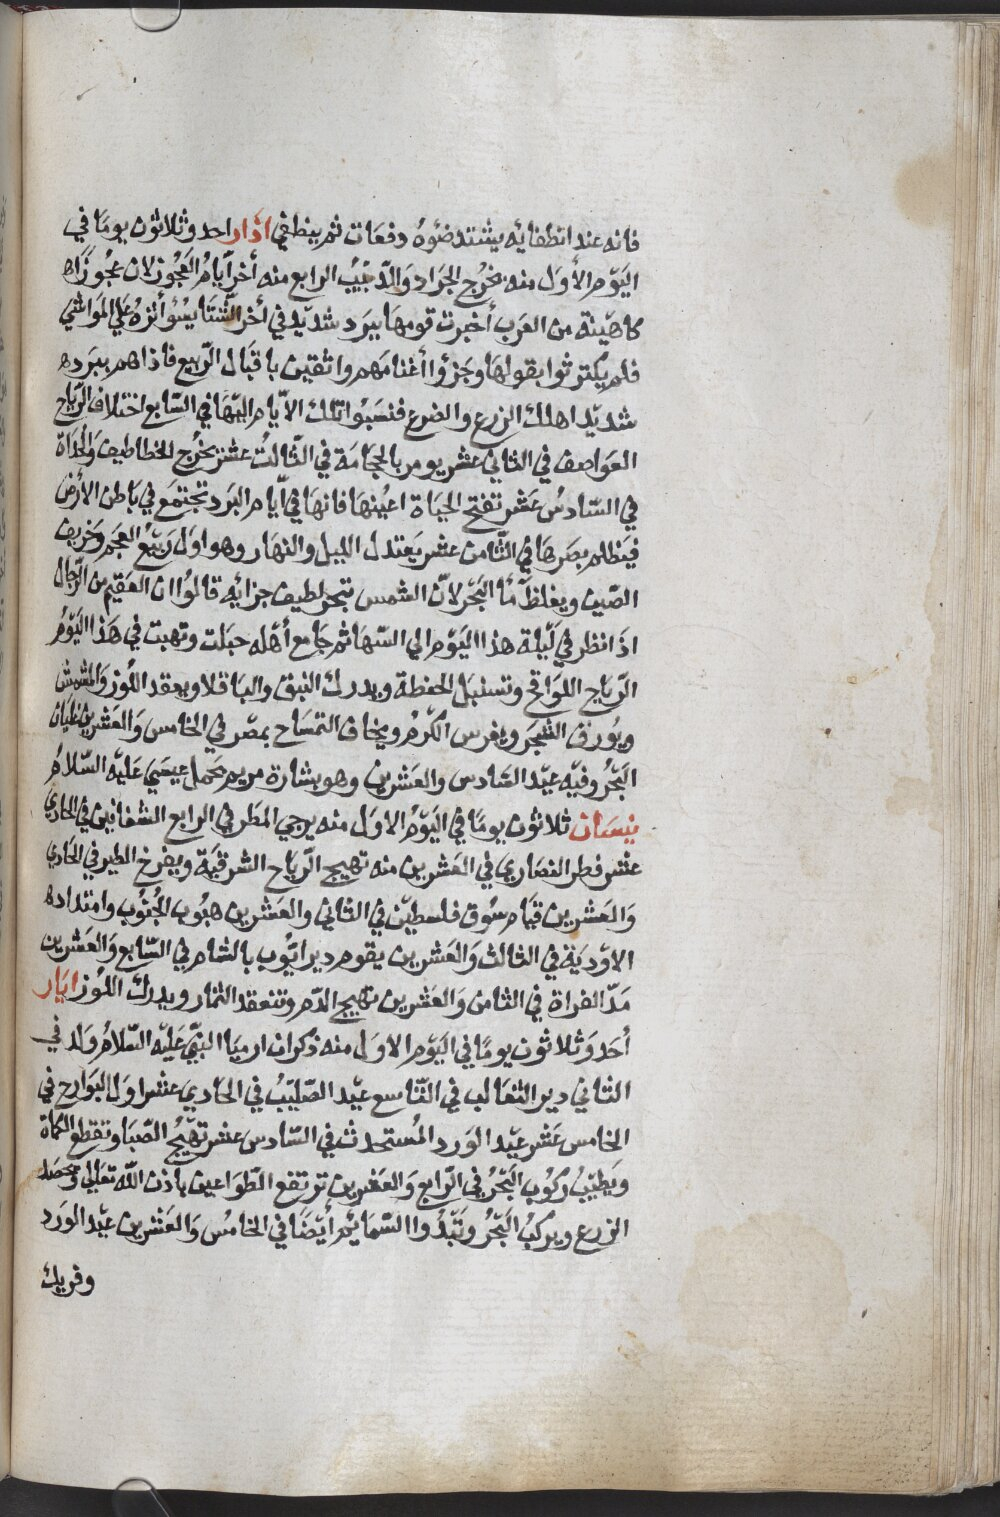 فانه عند انطفايه يشتد ضوءه دفعات ثم ينطفي اذار احد وثلاثون يوما في
اليوم الأول منه يخرج الجراد والدبيب الرابع منه أخر أيام العجوز لان عجوزا
كاهنة من العرب أخبرت قومها ببرد شديد في أخر الشتا يسؤ أثره علي المواشي
فلم يكترثوا بقولها وجزؤا أغنامهم واثقين باقبال الربيع فاذاهم ببرد
شديد اهلك الزرع والضرع فنسبوا تلك الايام اليها في السابع اختلاف الرياح
العواصف في الثاني عشر يومر بالحجامة في الثالث عشر يخرج الخطاطيف والحداة
في السادس عشر تفتح الحياة اعينها فانها في أيام البرد تجتمع في باطن الأرض
فيظلم بصرها في الثامن عشر يعتدل الليل والنهار وهو اول ربيع العجم وخريف
الصين ويغلظ مأ البحر لان الشمس تبخر لطيف جزائه قالوا ان العقيم من الرجال
اذا نظر في ليلة هذا اليوم الي السها ثم جامع أهله حبلت وتهبت في هذا اليوم
الرياح اللواقح وتسنبل الحنطة ويدرك النبق والباقلا ويعقد اللوز والمشمش
ويورق الشجر ويغرس الكرم ويخاف التمساح بمصر في الخامس والعشرين غليان
البحر وفيه عيد السادس والعشرين وهو بشارة مريم بحمل عيسي عليه السلام
نيسان ثلاثون يوما في اليوم الاول منه يرجي المطر في الرابع الشعانين في الحادي
عشر فطر النصاري في العشرين منه تهيج الرياح الشرقية ويفرخ الطير في الحادي
والعشرين قيام سوق فلسطين في الثاني والعشرين هبوب الجنوب وامتداد
الاودية في الثالث والعشرين يقوم دير ايوب بالشام في السابع والعشرين
مد الفراة في الثامن والعشرين تهيج الدم وتنعقد الثمار ويدرك اللوز ايار
أحد وثلاثون يوما في اليوم الاول منه ذكران ارميا النبي عليه السلام ولد في
الثاني دير الثعالب في التاسع عيد الصليب في الحادي عشر اول البوارح في
الخامس عشر عيد الورد المستحدث في السادس عشر تهيج الصبا وتقطع الكماة
ويطيب ركوب البحر في الرابع والعشرين ترتفع الطواعين باذن الله تعالي ويحصد
الزرع ويركب البحر وتبدوا السمايم أيضا في الخامس والعشرين عيد الورد
وفريك